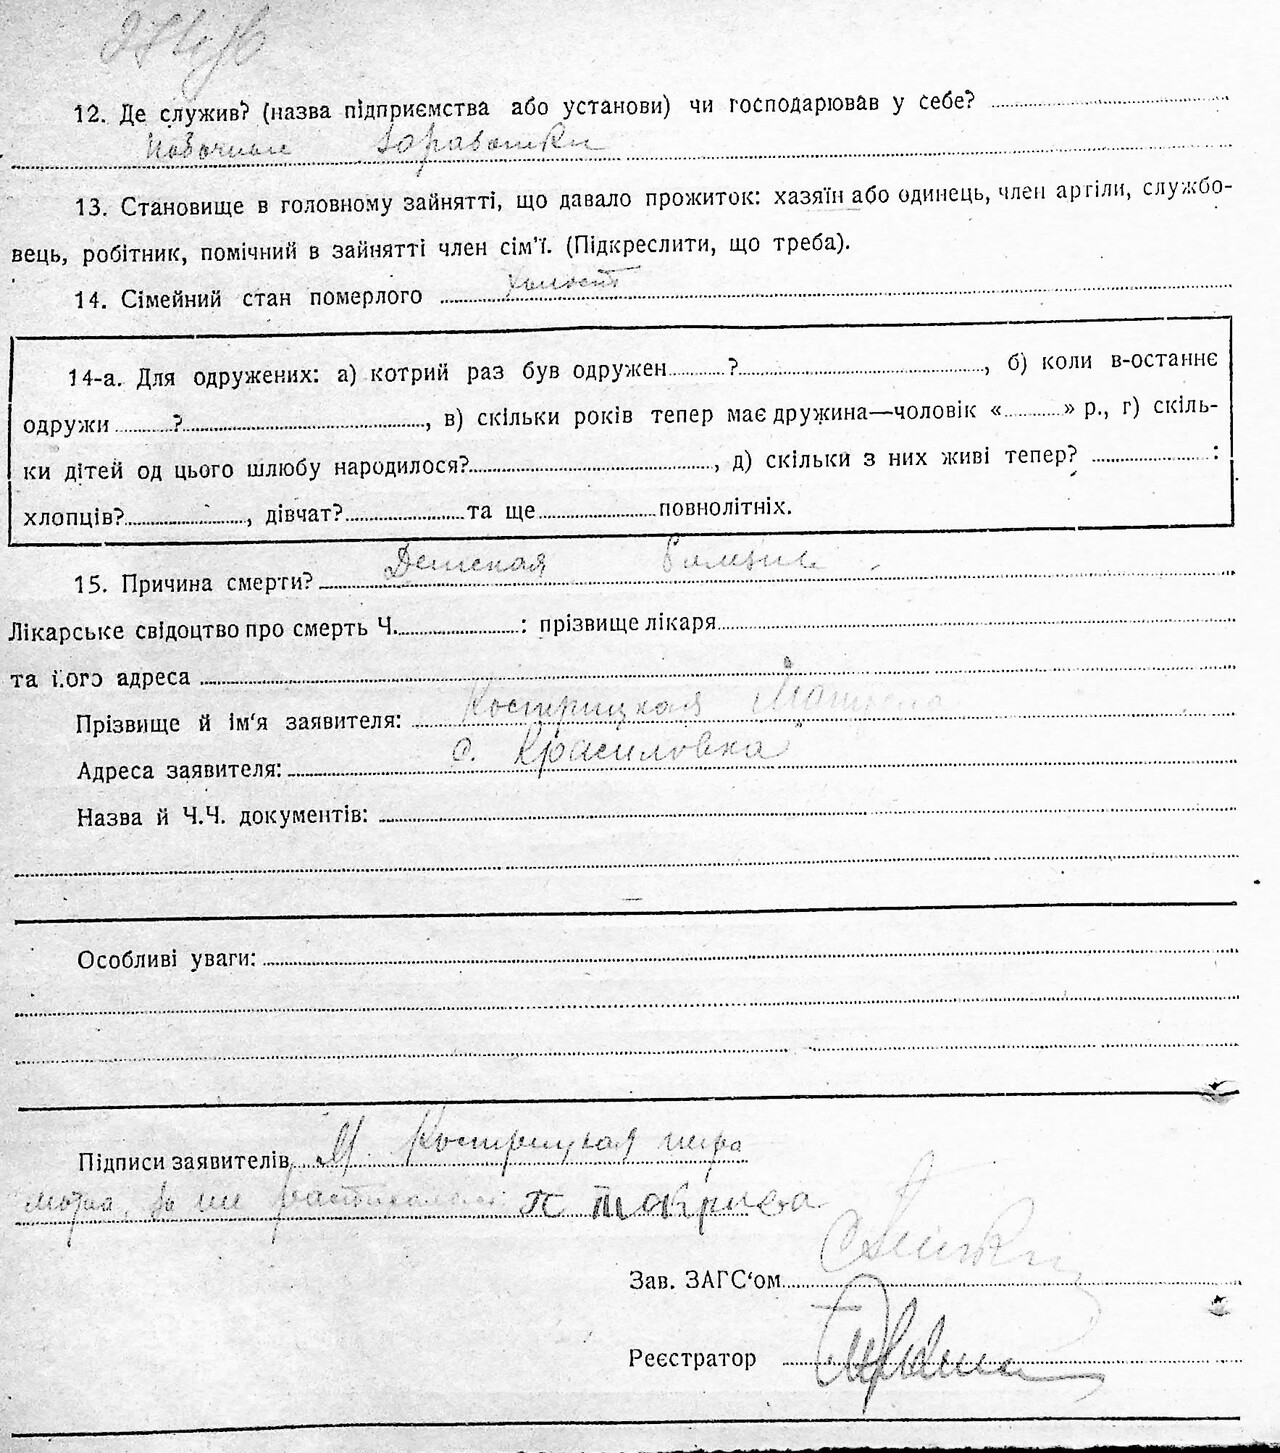 12. Де служив? (назва підприємства або установи) чи господарював у себе?
13. Становище в головному зайнятті, що давало прожиток: хазяїн або одинець, член артіли, службо-
вець, робітник, помічний в зайнятті член сім'ї. (Підкреслити, що треба).
14. Сімейний стан померлого холост
14-а. Для одружених: а) котрий раз був одружен ? , б) коли в-останнє
одружи ? , в) скільки років тепер має дружина—чоловік « » р., г) скіль-
ки дітей од цього шлюбу народилося? , д) скільки з них живі тепер? :
хлопців? , дівчат? та ще повнолітніх.
15. Причина смерти? Детская
Лікарське свідоцтво про смерть Ч. : прізвище лікаря
та його адреса
Прізвище й ім'я заявителя: Кострицкая
Адреса заявителя: с. Красиловка
Назва й Ч.Ч. документів:
Особливі уваги:
Підписи заявителів М. Кострицкая
Зав. ЗАГС'ом
Реєстратор